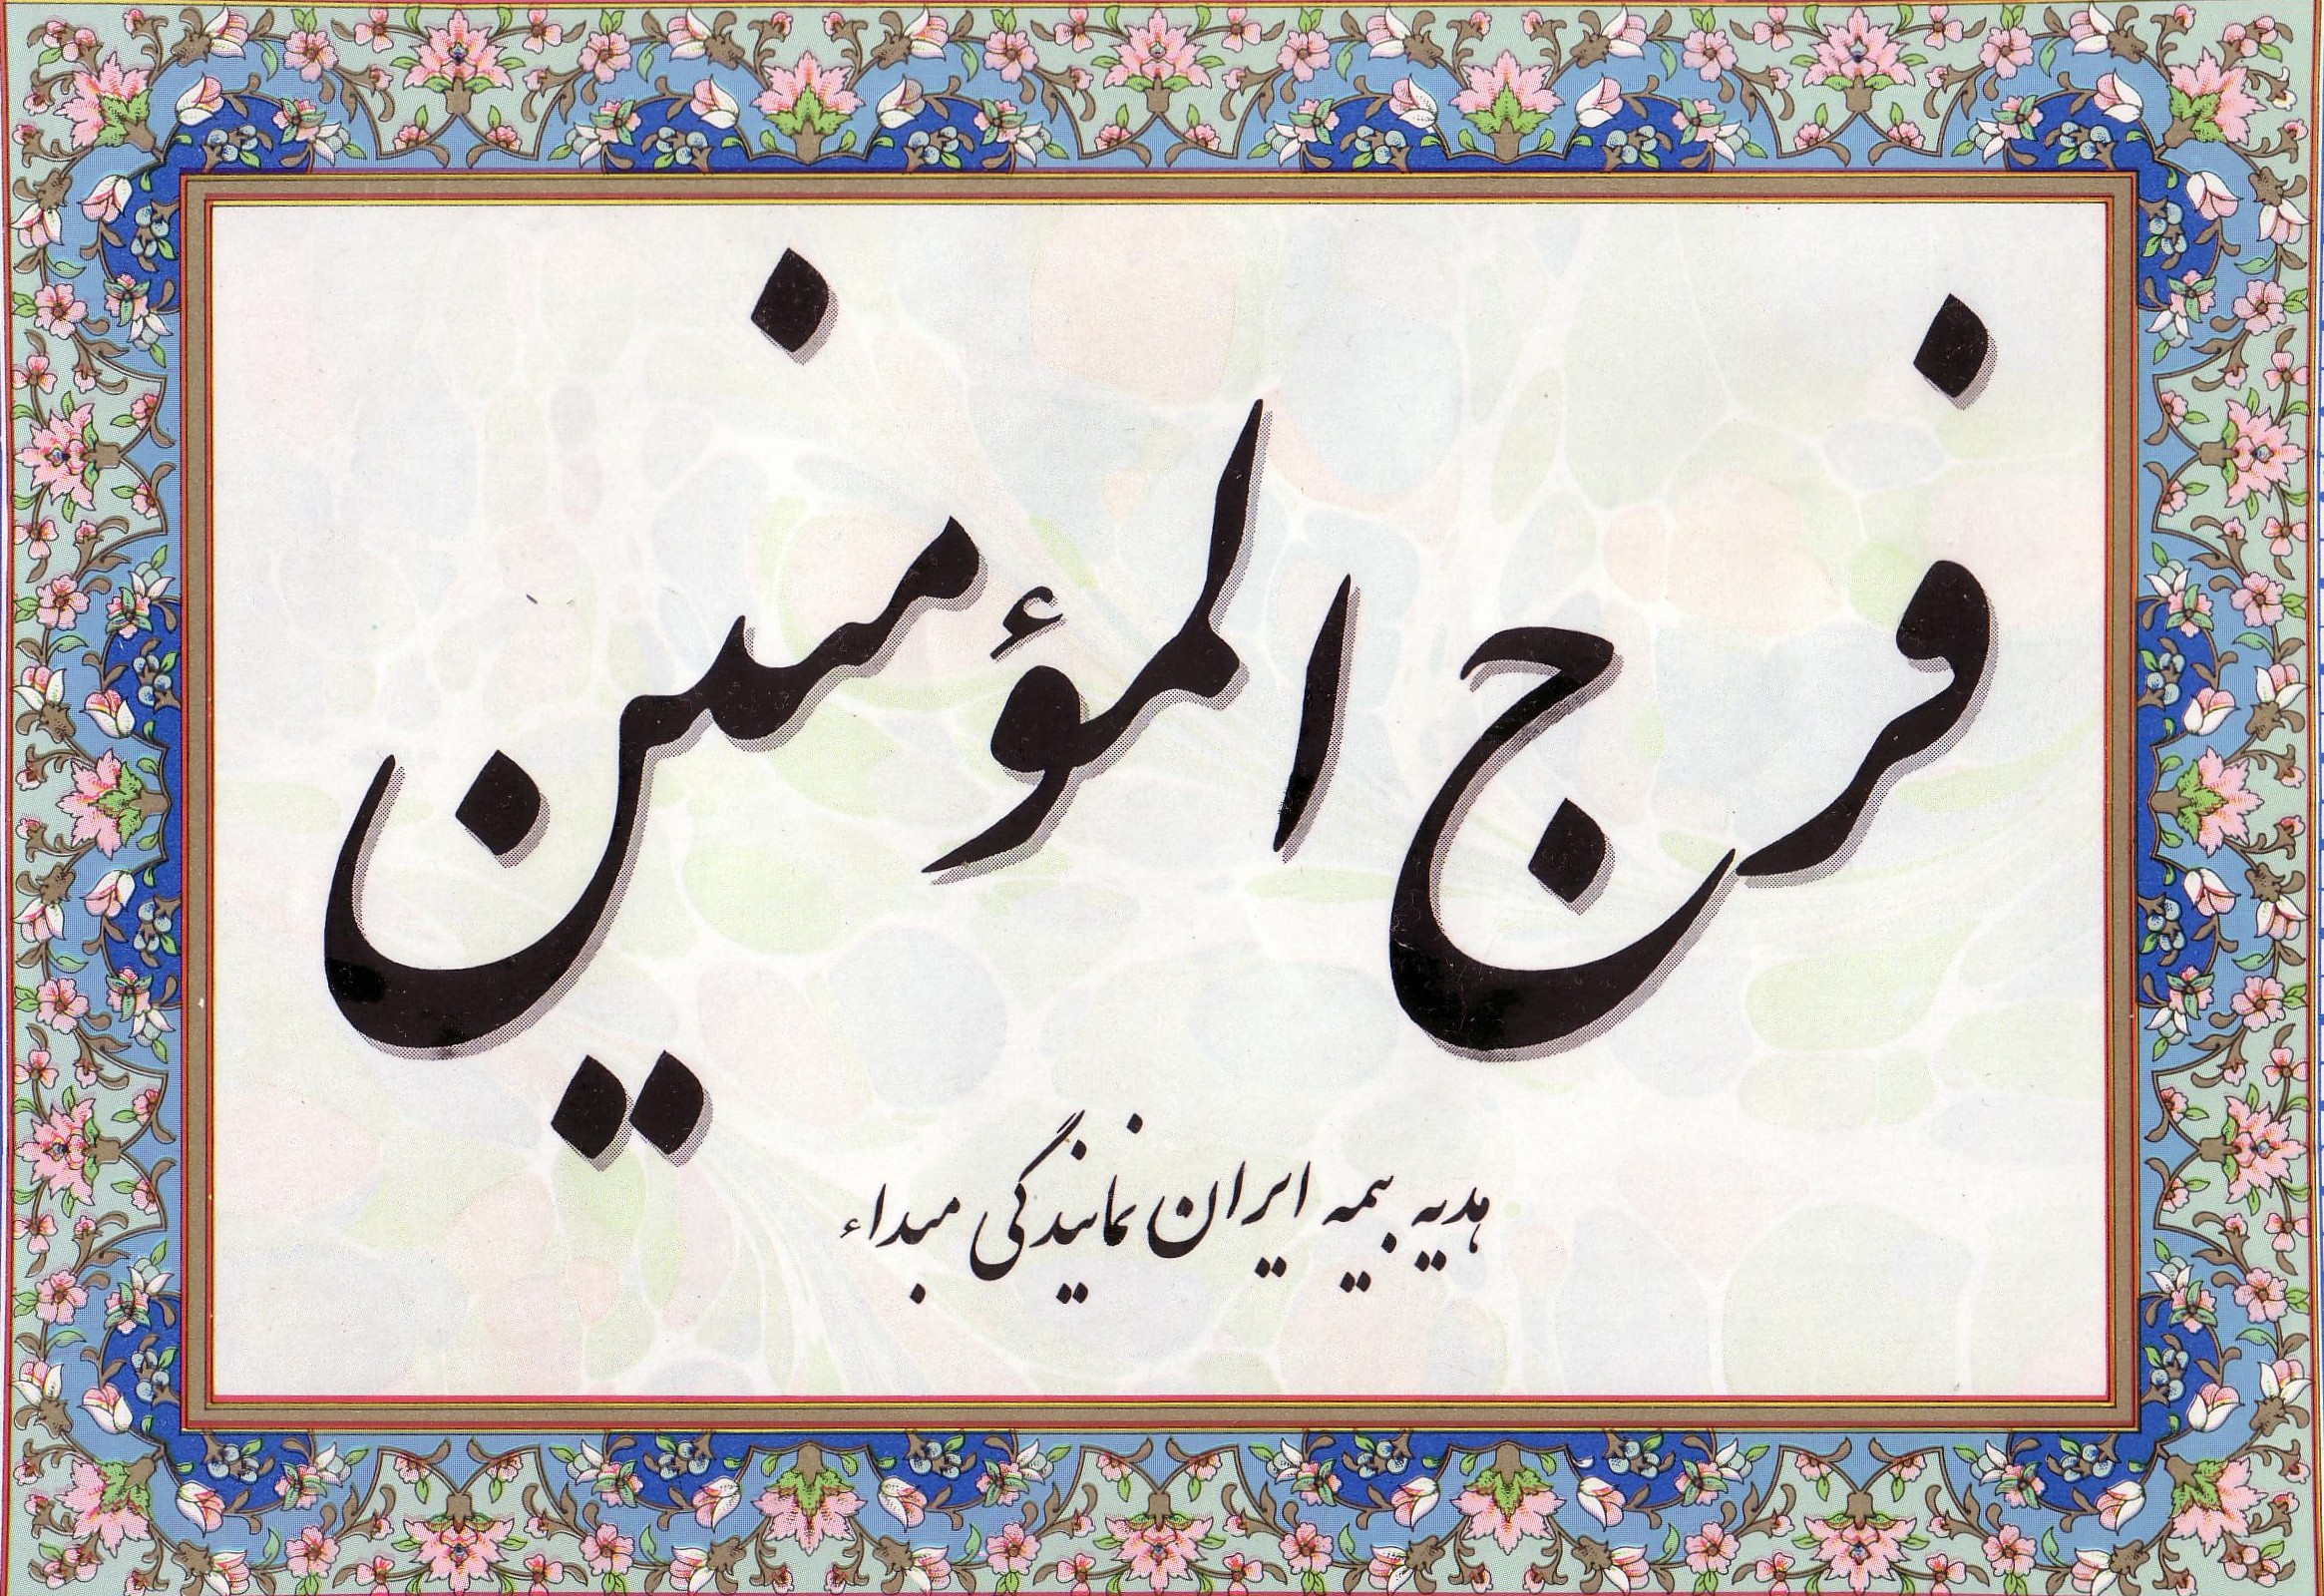 فرج المؤمنین
هدیه بیمه ایران نمایندگی مبداء